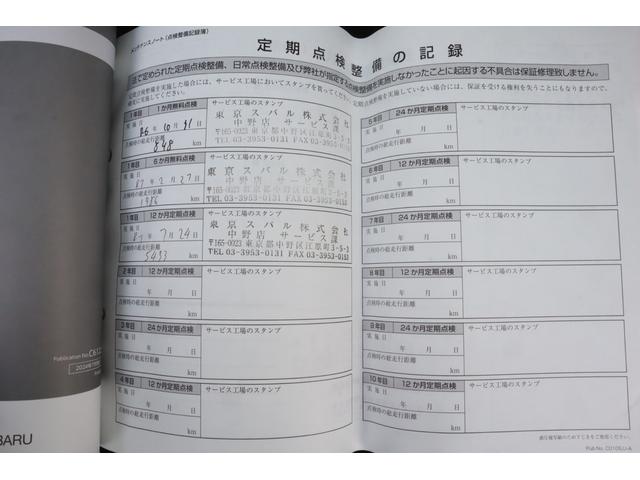 メンテナンスノート（点検整備記録簿）
定期点検整備の記録
法で定められた定期点検整備、日常点検整備及び弊社が指定する点検整備を実施しなかったことに起因する不具合は保証修理致しません。
定期点検整備を実施した場合には、サービス工場においてスタンプを貰ってください。定期点検整備を実施していない場合には、保証を受ける権利を失うこともありますので、
確実に実施してください。
1年目 1か月無料点検 サービス工場のスタンプ
実施日 R6年10月31日
点検時の総走行距離
848 km
東京スバル株式会社
中野店 サービス課
〒165-0023 東京都中野区江原町3-5-3
TEL 03-3953-0131 FAX 03-3953
1年目 6か月無料点検 サービス工場のスタンプ
実施日 R7年2月27日
点検時の総走行距離
1986 km
東京スバル株式会社
中野店 サービス課
〒165-0023 東京都中野区江原町3-5-3
TEL 03-3953-0131 FAX 03-3953
1年目 12か月定期点検 サービス工場のスタンプ
実施日 R7年7月24日
点検時の総走行距離
5433 km
東京スバル株式会社
中野店 サービス課
〒165-0023 東京都中野区江原町3-5-3
TEL 03-3953-0131 FAX 03-3953
2年目 12か月定期点検 サービス工場のスタンプ
実施日 年 月 日
点検時の総走行距離
km
3年目 24か月定期点検 サービス工場のスタンプ
実施日 年 月 日
点検時の総走行距離
km
4年目 12か月定期点検 サービス工場のスタンプ
実施日 年 月 日
点検時の総走行距離
km
5年目 24か月定期点検 サービス工場のスタンプ
実施日 年 月 日
点検時の総走行距離
km
6年目 12か月定期点検 サービス工場のスタンプ
実施日 年 月 日
点検時の総走行距離
km
7年目 24か月定期点検 サービス工場のスタンプ
実施日 年 月 日
点検時の総走行距離
km
8年目 12か月定期点検 サービス工場のスタンプ
実施日 年 月 日
点検時の総走行距離
km
9年目 24か月定期点検 サービス工場のスタンプ
実施日 年 月 日
点検時の総走行距離
km
10年目 12か月定期点検 サービス工場のスタンプ
実施日 年 月 日
点検時の総走行距離
km
Publication No.
BARU